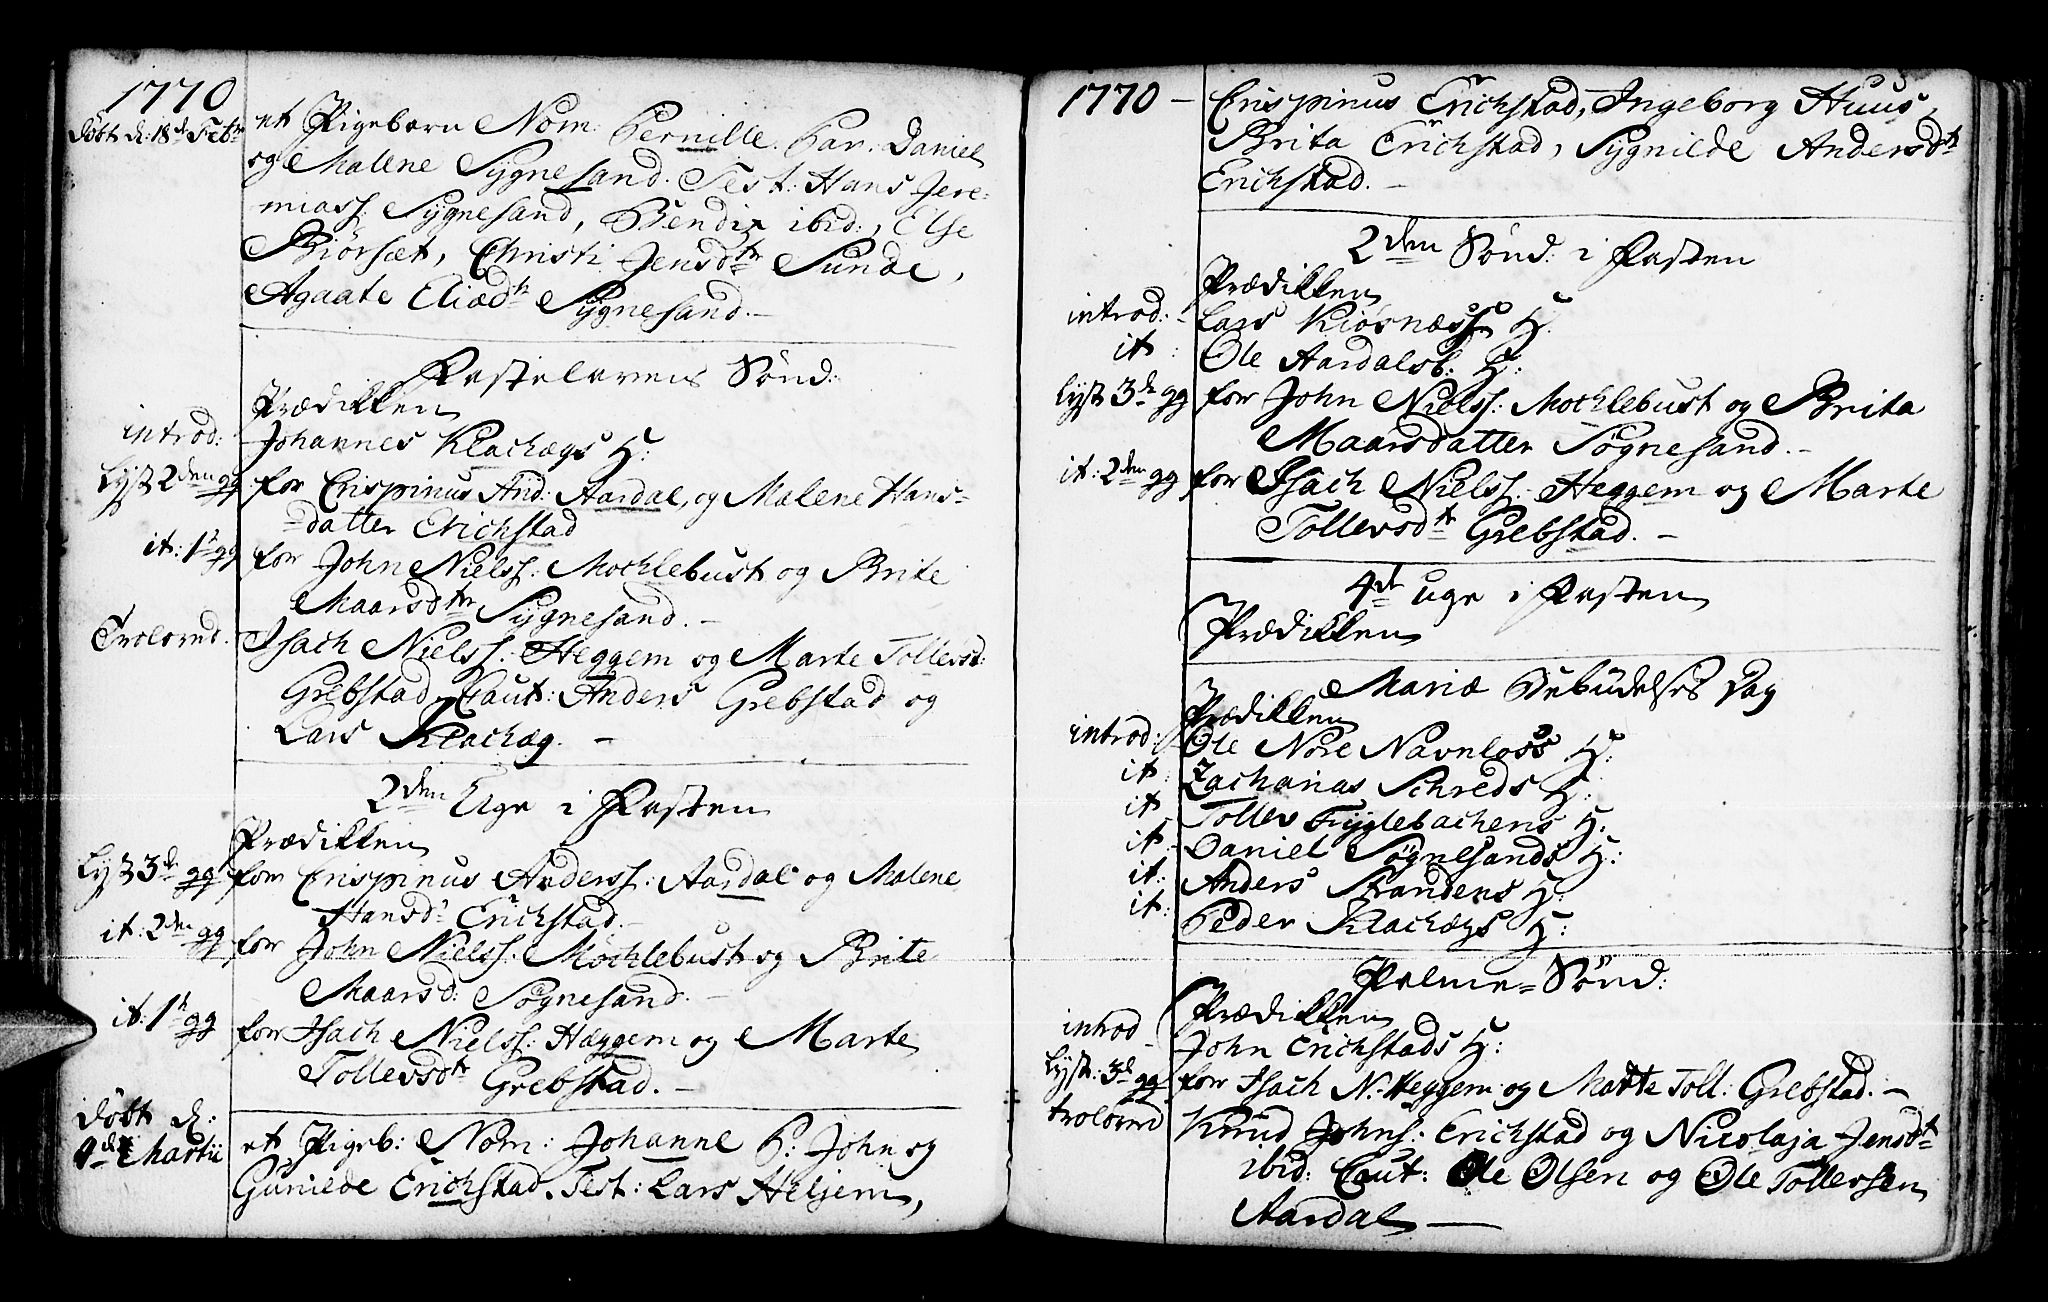 1770
Døbt d: 18de Febr.
et Pigebarn Nom: Pernille. Par. Daniel
og Malene Sygnesand. Test: Hans Jere-
miass: Sygnesand, Bendix ibid:, Else
Biörsæt, Christi Jensdtr Sunde,
Agaate Eliædtr Sygnesand.-
Fastelavens Sönd:
Prædikken
introd: Johannes Klachægs H:
Lyst 2den gg for Crispinus And: Aardal, og Malene Hans-
datter Erichstad
it: 1te gg for John Nielss: Mochlebust og Brite
Maarsdtr Sygnesand.-
Troloved. Isach Nielss: Heggem og Marte Tollevsd:
Grebstad Caut: Anders Grebstad og
Lars Klachæg. -
2den Uge i Fasten
Prædikken
Lyst 3de gg for Crispinus Anderss: Aardal og Malene
Hansdr Erichstad.-
it: 2den gg for John Nielss: Mochlebust og Brite
Maarsd: Søgnesand.-
it: 1te gg for Isach Nielss: Hæggem og Marte
Tollevsdtr Grebstad.-
Døbt d:
9de Martii et Pigeb: Nom: Johanne P: John og
Gunilde Erichstad. Test: Lars Heljem,
1770 - Crispinus Erichstad, Ingeborg Huus,
Brita Erichstad, Sygnilde Andersdtr
Erichstad.-
2den Sönd: i Fasten
Prædikken
introd: Lars Kiösnæss H:
it: Ole Aardalsb: H:
Lyst 3de gg for John Nielss: Mochlebust og Brita
Maarsdatter Søgnesand.-
it: 2den gg for Isach Nielss: Heggem og Marte
Tollevsdtr Grebstad.-
4de Uge i Fasten
Prædikken
Mariæ Bebudelses Dag
Prædikken
introd: Ole Nore Navnløss H:
it: Zacharias Schreds H:
it Tollev Fyglebachens H:
it: Daniel Søgnesands H:
it: Anders Strandens H:
it: Peder Klachægs H:
Palme=Sönd:
Prædikken
introd John Erichstads H:
Lyst: 3de gg for Isach N: Heggem og Marte Toll: Grebstad.-
troloved Knud Johns: Erichstad og Nicolaja Jensdtr
ibid: Caut: Ole Olsen og Ole Tollersen
Aardal